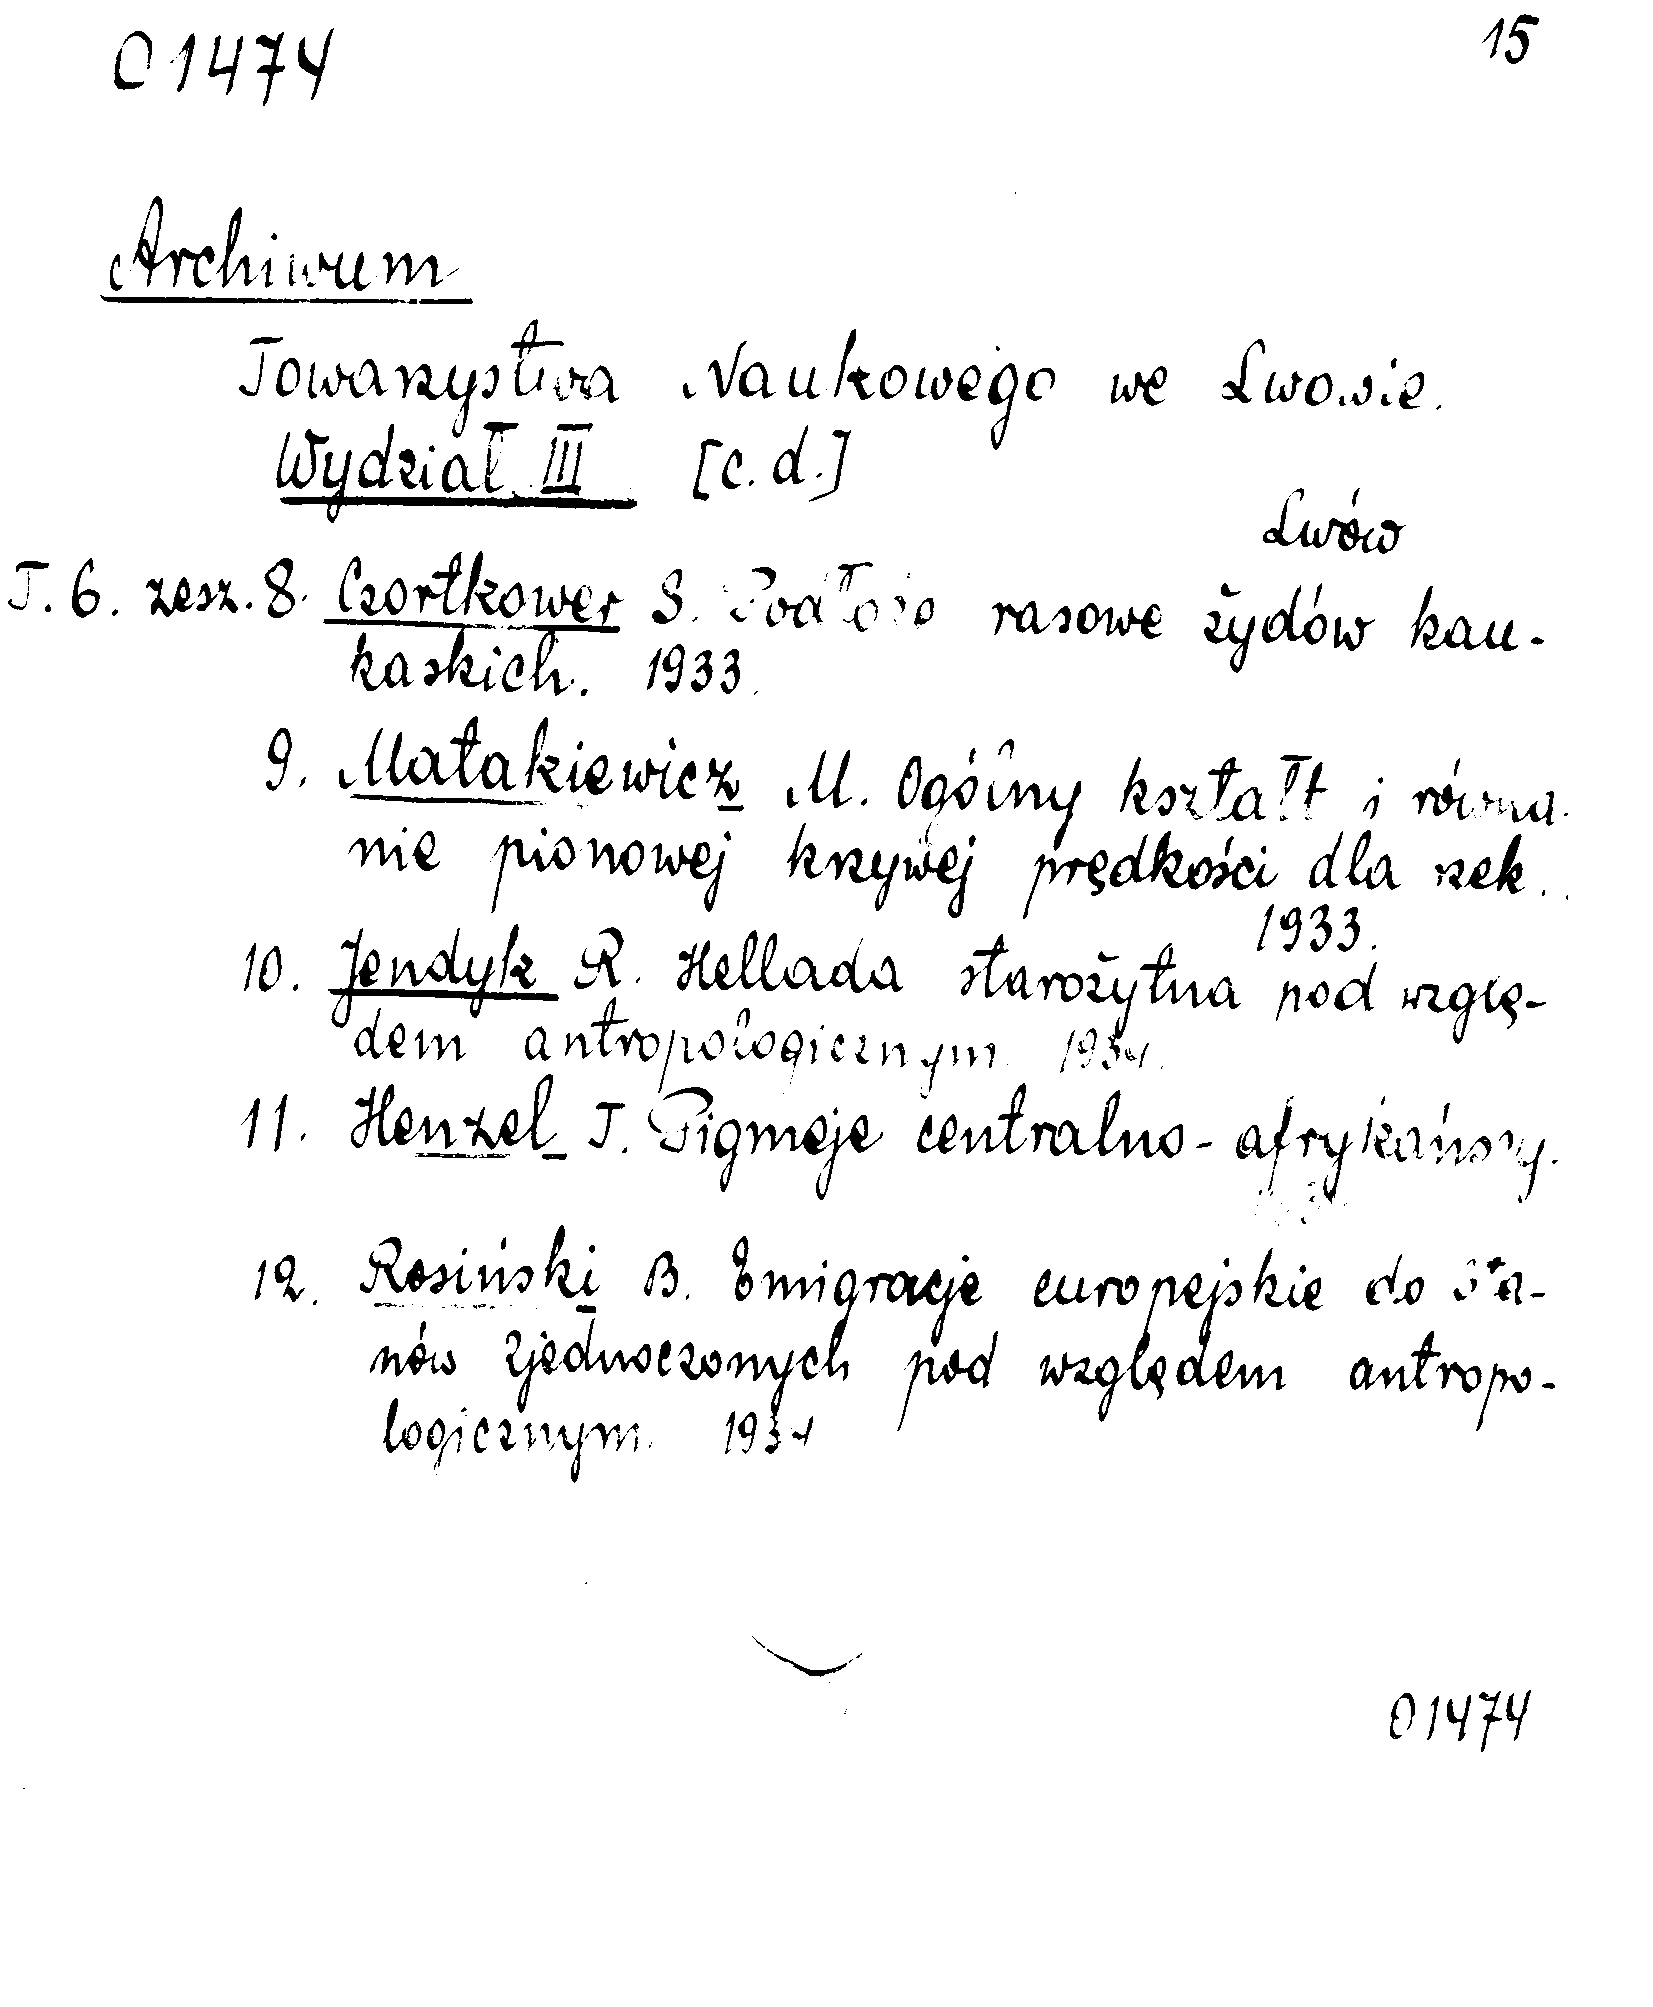 O 1474
15
Archiwum
Towarzystwa Naukowego we Lwowie.
Wydział III [c.d.]
Lwów
T. 6. zesz. 8. Czortkower S. Podłoże rasowe żydów kau-
kaskich. 1933.
9. Matakiewicz M. Ogólny kształt i równa-
nie pionowej krzywej prędkości dla rzek.
1933.
10. Jendyk R. Hellada starożytna pod wzglę-
dem antropologicznym 1934.
11. Henzel T. Pigmeje centralno-afrykańscy.
12. Rosiński B. Emigracje europejskie do Sta-
nów Zjednoczonych pod względem antropo-
logicznym. 1934
O 1474